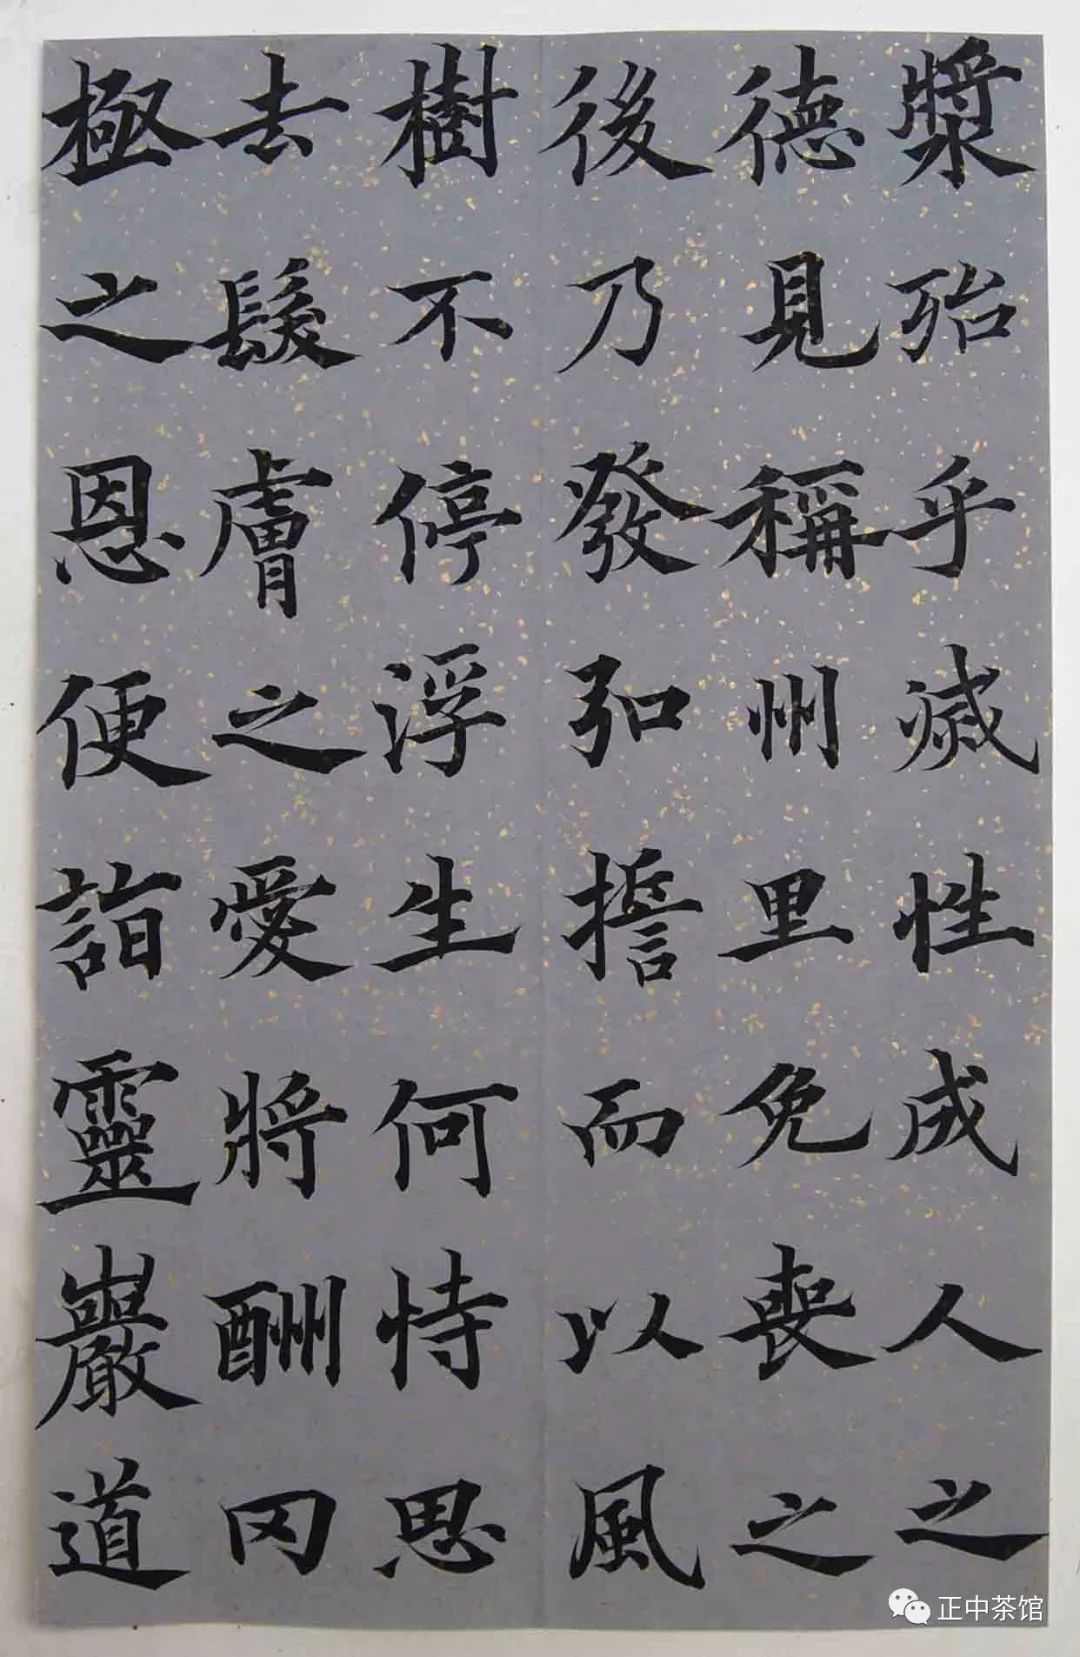 漿殆乎滅性成人之
德見稱州里免喪之
後乃發弘誓而以風
樹不停浮生何恃思
去髮膚之愛將酬罔
極之恩便詣靈巖道
正中茶馆